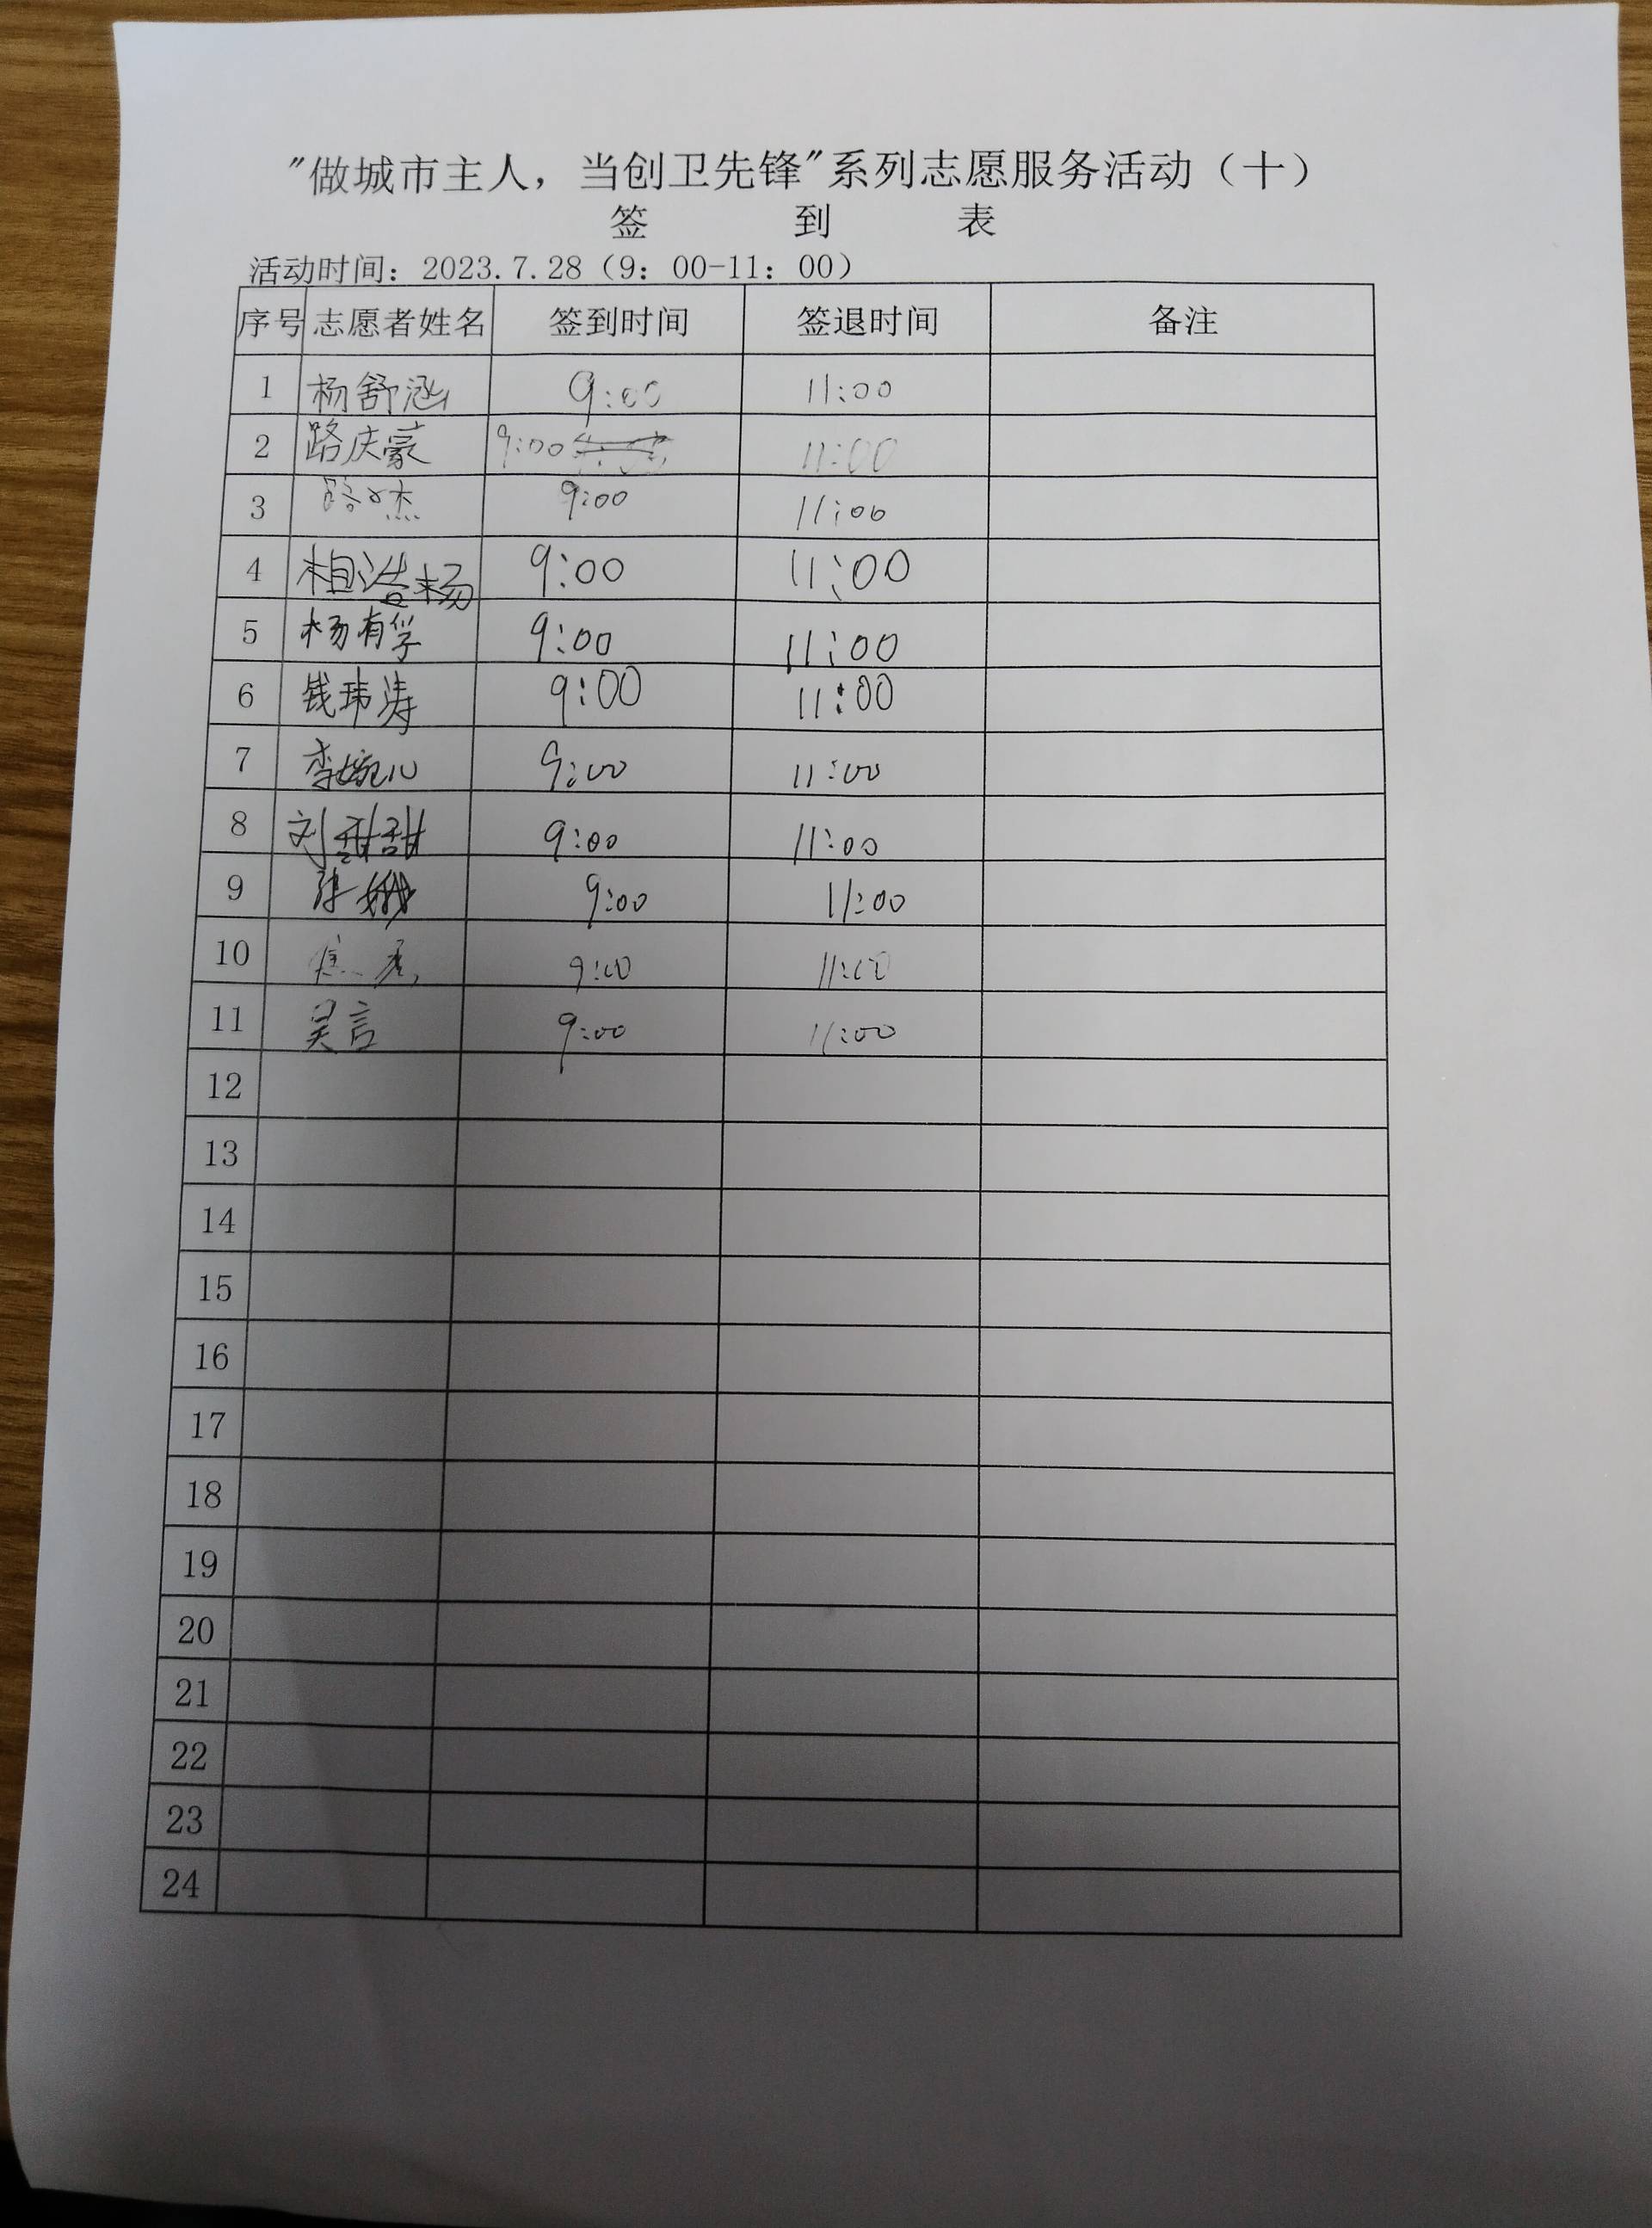 "做城市主人，当创卫先锋"系列志愿服务活动（十）
签 到 表
活动时间：2023.7.28（9：00-11：00）
序号 志愿者姓名 签到时间 签退时间 备注
1 杨舒涵 9:00 11:00
2 路庆豪 9:00 11:00
3 9:00 11:00
4 相浩杨 9:00 11:00
5 杨有孚 9:00 11:00
6 钱玮涛 9:00 11:00
7 李婉心 9:00 11:00
8 刘甜甜 9:00 11:00
9 张娥 9:00 11:00
10 9:00 11:00
11 吴言 9:00 11:00
12
13
14
15
16
17
18
19
20
21
22
23
24